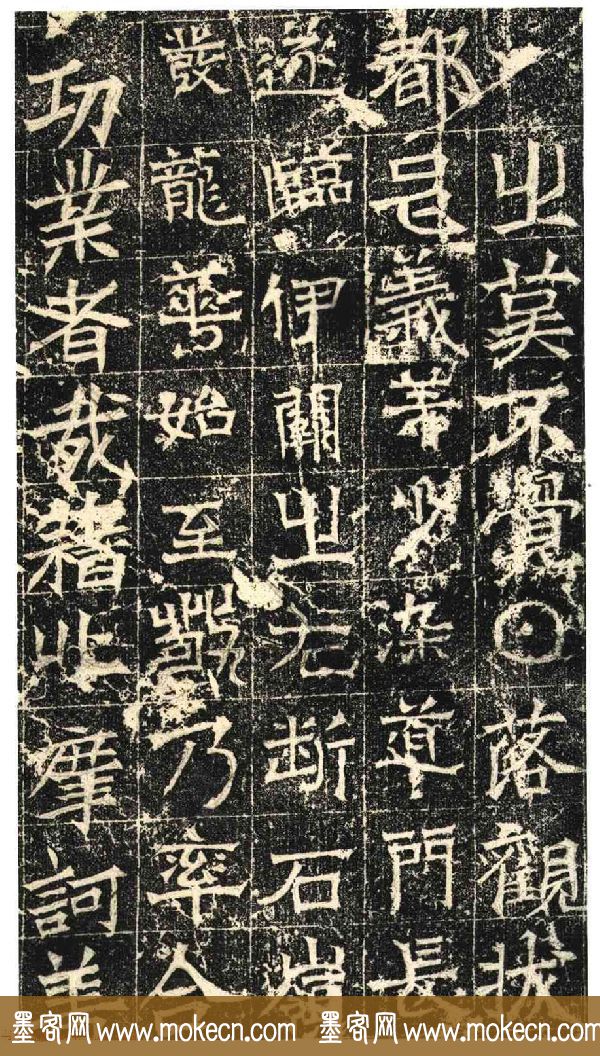 之莫不覺⊙落觀
都邑義等染道門長
遂臨伊闕之右斷石嶺
龍華始至乃率合
功業者哉藉此摩訶
墨客网 www.mokecn.com 墨客网 www.mokecn.com